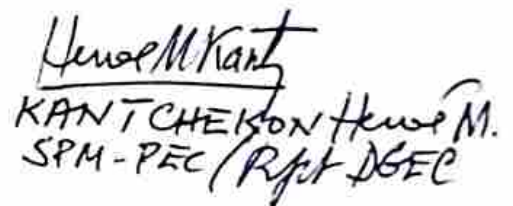 Hervé M Kant
KANTCHEKON Hervé M.
SPM-PEC / Rpt DGEC